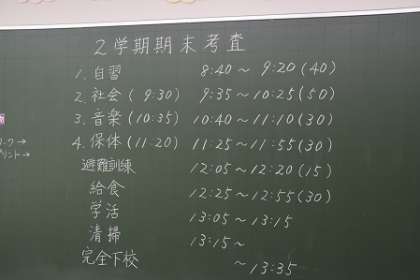 2学期期末考査
1. 自習 8:40～9:20(40)
2. 社会(9:30) 9:35～10:25(50)
3. 音楽(10:35) 10:40～11:10(30)
4. 保体(11:20) 11:25～11:55(30)
避難訓練 12:05～12:20(15)
給食 12:25～12:55(30)
学活 13:05～13:15
清掃 13:15～
完全下校 ～13:35